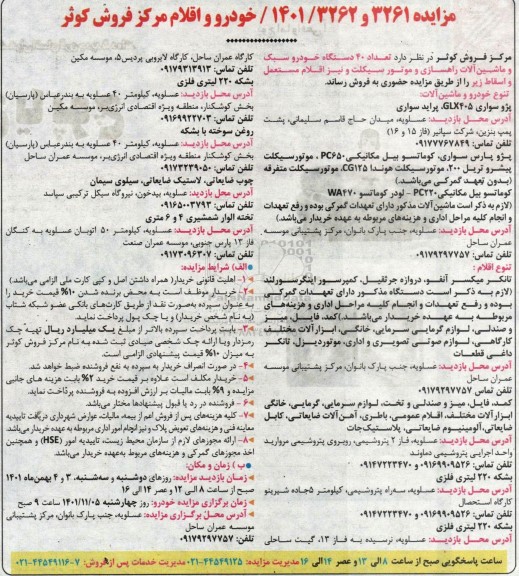 مزایده ۳۲۶۱ و ۱۴۰۱/۳۲۶۲ / خودرو و اقلام مرکز فروش کوثر
مرکز فروش کوثر در نظر دارد تعداد ۴۰ دستگاه خودرو سبک
و ماشین‌آلات راهسازی و موتور سیکلت و نیز اقلام مستعمل
و اسقاط زیر را از طریق مزایده حضوری به فروش رساند.
تنوع خودرو و ماشین‌آلات:
پژو سواری GLX۴۰۵، پراید سواری
آدرس محل بازدید: عسلویه، میدان حاج قاسم سلیمانی، پشت
پمپ بنزین، شرکت سپانیر (فاز ۱۵ و ۱۶)
تلفن تماس: ۰۹۱۷۷۷۶۷۸۴۹
پژو پارس سواری، کوماتسو بیل مکانیکی PC۶۵۰، موتورسیکلت
پیشرو تریل ۲۰۰، موتورسیکلت هوندا CG۱۲۵، موتورسیکلت متفرقه
(بدون تعهد گمرکی می‌باشد.)
کوماتسو بیل مکانیکی PC۲۲۰ - لودر کوماتسو WA۴۷۰
(لازم به ذکر است ماشین آلات مذکور دارای تعهدات گمرکی بوده و رفع تعهدات
و انجام کلیه مراحل اداری و هزینه‌های مربوطه به عهده خریدار می‌باشد.)
آدرس محل بازدید: عسلویه، جنب پارک بانوان، مرکز پشتیبانی موسسه
عمران ساحل
تلفن تماس: ۰۹۱۷۹۲۹۷۷۵۷
تنوع اقلام:
تانکر، میکسر آنفو، دروازه جرثقیل، کمپرسور اینگرسولرند
(لازم به ذکر است دستگاه مذکور دارای تعهدات گمرکی
بوده و رفع تعهدات و انجام کلیه مراحل اداری و هزینه‌های
مربوطه به عهده خریدار می‌باشد.) کمد، فایل، میز
و صندلی، لوازم گرمایی سرمایی، خانگی، ابزارآلات مختلف
کارگاهی، لوازم صوتی تصویری و اداری، موتوردیزل، تانکر
داغی قطعات
آدرس محل بازدید: عسلویه، جنب پارک بانوان، مرکز پشتیبانی موسسه
عمران ساحل
تلفن تماس: ۰۹۱۷۹۲۹۷۷۵۷
کمد، فایل، میز و صندلی و تخت، لوازم سرمایی، گرمایی، خانگی
ابزارآلات مختلف، اقلام عمومی، باطری، آهن آلات ضایعاتی، کابل
ضایعاتی، آلومینیوم ضایعاتی، پلاستیکجات
آدرس محل بازدید: عسلویه، فاز ۲ پتروشیمی، روبروی پتروشیمی مروارید
واحد اجرایی پتروشیمی دماوند
تلفن تماس: ۰۹۱۶۹۹۰۹۵۲۶ و ۰۹۱۴۷۲۲۳۴۷۰
بشکه ۲۲۰ لیتری فلزی
آدرس محل بازدید: عسلویه، سه‌راه پتروشیمی، کیلومتر ۵ جاده شیرینو
کارگاه استحصال
تلفن تماس: ۰۹۱۶۹۹۰۹۵۲۶ و ۰۹۱۴۷۲۲۳۴۷۰
بشکه ۲۲۰ لیتری فلزی
آدرس محل بازدید: عسلویه، نرسیده به فاز ۱۳، گیت ساحلی
کارگاه عمران ساحل، کارگاه لایروبی پردیس ۵، موسسه مکین
تلفن تماس: ۰۹۱۷۹۳۱۳۹۱۳
بشکه ۲۲۰ لیتری فلزی
آدرس محل بازدید: عسلویه، کیلومتر ۴۰ عسلویه به بندرعباس (پارسیان)
بخش کوشکنار، منطقه ویژه اقتصادی انرژی‌بر، موسسه مکین
تلفن تماس: ۰۹۱۶۹۹۲۲۷۰۳
روغن سوخته با بشکه
آدرس محل بازدید: عسلویه، کیلومتر ۴۰ عسلویه به بندرعباس (پارسیان)
بخش کوشکنار، منطقه ویژه اقتصادی انرژی‌بر، موسسه عمران ساحل
تلفن تماس: ۰۹۱۷۳۲۳۹۰۵۰
چوب ضایعاتی، لاستیک ضایعاتی، سیلوی سیمان
آدرس محل بازدید: عسلویه، بیدخون، نیروگاه سیکل ترکیبی سپاسد
تلفن تماس: ۰۹۱۶۵۰۰۳۷۹۳
تخته الوار شمشیری ۴ و ۶ متری
آدرس محل بازدید: عسلویه، کیلومتر ۵۰ اتوبان عسلویه به کنگان
فاز ۱۲ پارس جنوبی، موسسه عمران صنعت
تلفن تماس: ۰۹۱۷۳۰۹۶۳۰۷
الف) شرایط مزایده:
۱- اهلیت قانونی خریدار( همراه داشتن اصل و کپی کارت ملی الزامی می‌باشد)
۲- خریدار موظف است به محض برنده شدن ۱۰% قیمت خرید را
به عنوان سپرده به‌صورت نقد از طریق کارت‌های بانکی عضو شبکه شتاب
(به نام شخص خریدار) و یا چک پول پرداخت نماید.
۳- بابت پرداخت سپرده بالاتر از مبلغ یک میلیارد ریال تهیه چک
رمزدار و یا ارائه چک شخصی صیادی ثبت شده به نام مرکز فروش کوثر
به میزان ۱۰% قیمت پیشنهادی الزامی است.
۴- در صورت انصراف خریدار به سپرده به نفع فروشنده ضبط خواهد شد.
۵- خریدار مکلف است علاوه بر قیمت خرید ۲% بابت هزینه های جانبی
مزایده و ۹% بابت مالیات بر ارزش افزوده به فروشنده پرداخت نماید.
۶- فروشنده در رد یا قبول پیشنهادها مختار می‌باشد.
۷- کلیه هزینه‌های پس از فروش اعم از بیمه، مالیات، عوارض شهرداری دریافت تاییدیه
معاینه فنی و هزینه‌های تعویض پلاک و نیز انجام امور اداری مربوطه به عهده خریدار می‌باشد.
۸- ارائه مجوزهای لازم از سازمان محیط زیست، تاییدیه امور (HSE) و همچنین
اخذ مجوزهای گمرکی و هزینه‌های مربوط به‌عهده خریدار می‌باشد.
ب) زمان و مکان:
زمـان بازدید مزایده: روزهای دوشنبه و سه‌شنبه، ۳ و ۴ بهمن‌ماه ۱۴۰۱
صبح از ساعت ۸ الی ۱۲ و عصر ۱۴ الی ۱۶
زمان برگزاری مزایده خودرو: روز چهارشنبه ۱۴۰۱/۱۱/۰۵ ساعت ۹ صبح
آدرس محل برگزاری مزایده: عسلویه، جنب پارک بانوان، مرکز پشتیبانی
موسسه عمران ساحل
تلفن تماس: ۰۹۱۷۹۲۹۷۷۵۷
ساعت پاسخگویی صبح از ساعت ۸ الی ۱۳ و عصر ۱۴ الی ۱۶ مدیریت مزایده: ۴۴۵۴۹۱۲۵-۰۲۱ مدیریت خدمات پس از فروش: ۷-۴۴۵۴۹۱۱۶-۰۲۱